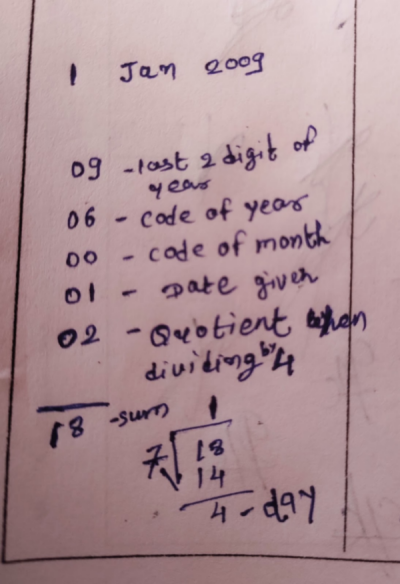 1 Jan 2009
09 - last 2 digit of
year
06 - code of year
00 - code of month
01 - Date given
02 - Quotient when
dividing by 4
18 - sum
1
7 18
14
4 - day